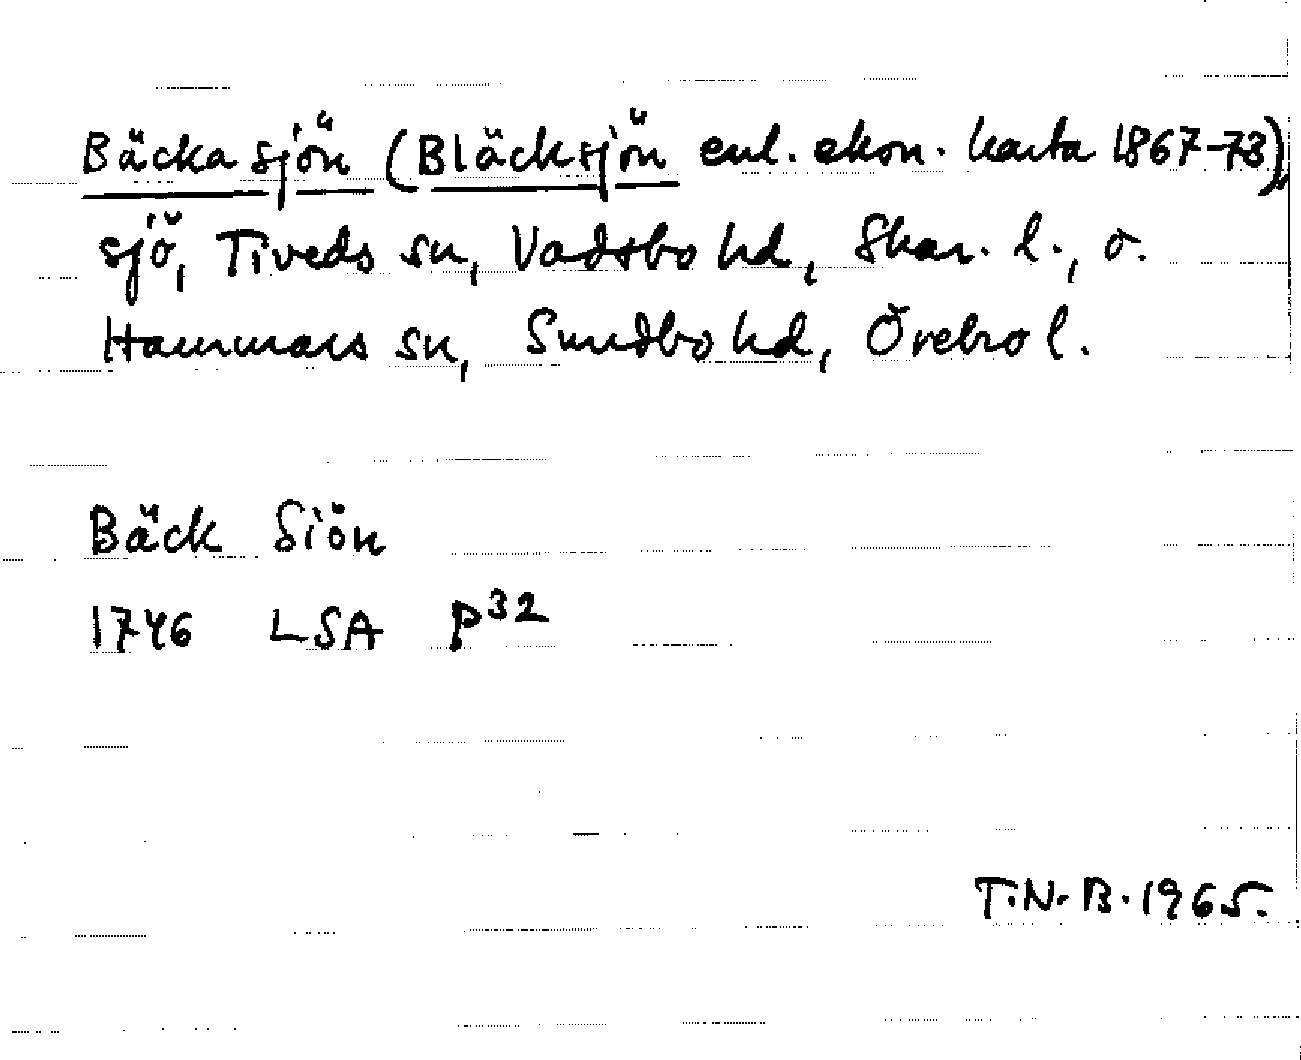 Bäckasjön (Bläcksjön enl. ekon. karta 1867-73),
sjö, Tiveds sn, Vadsbo hd, Skar. l., o.
Hammars sn, Sundbo hd, Örebro l.
Bäck Siön
1746 LSA P32
T.N.B. 1965.